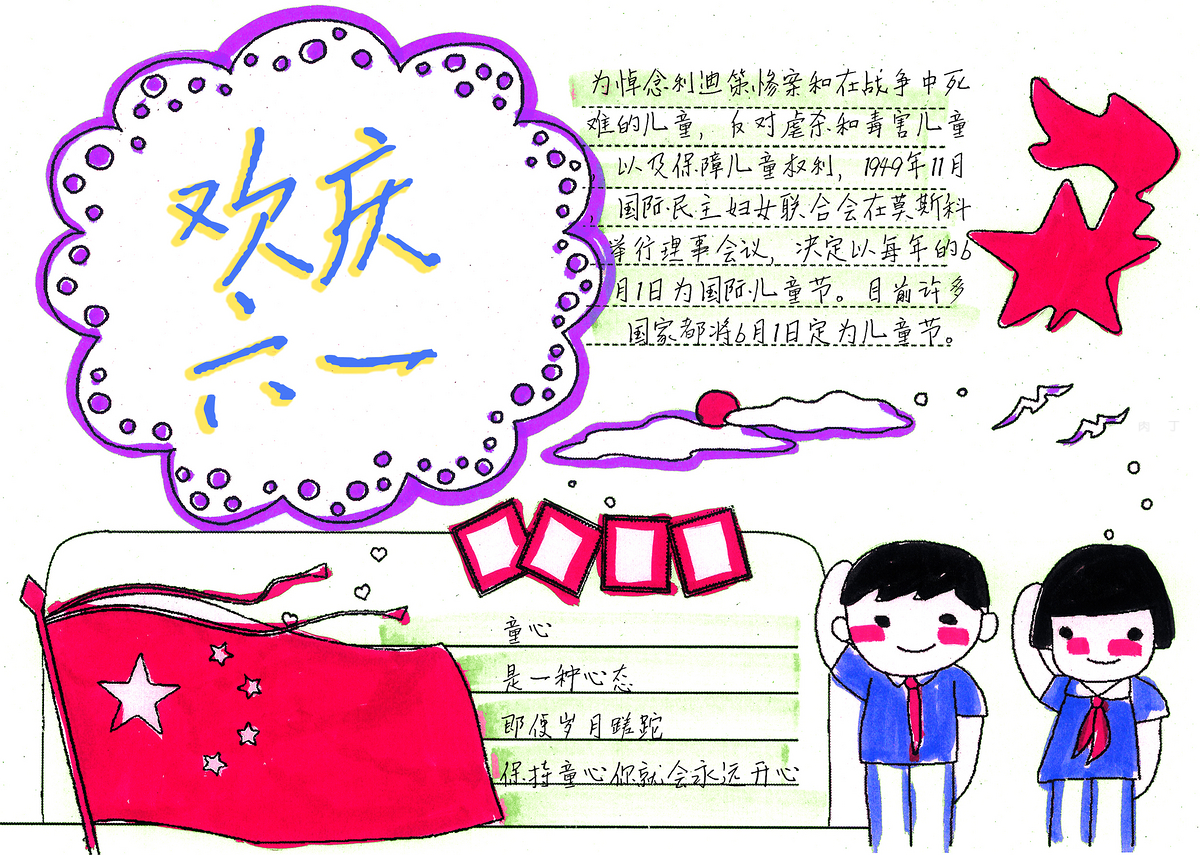 欢庆
六一
为悼念利迪策惨案和在战争中死
难的儿童，反对虐杀和毒害儿童
以及保障儿童权利，1949年11月
，国际民主妇女联合会在莫斯科
举行理事会议，决定以每年的6
月1日为国际儿童节。目前许多
国家都将6月1日定为儿童节。
肉丁
童心
是一种心态
即便岁月蹉跎
保持童心你就会永远开心